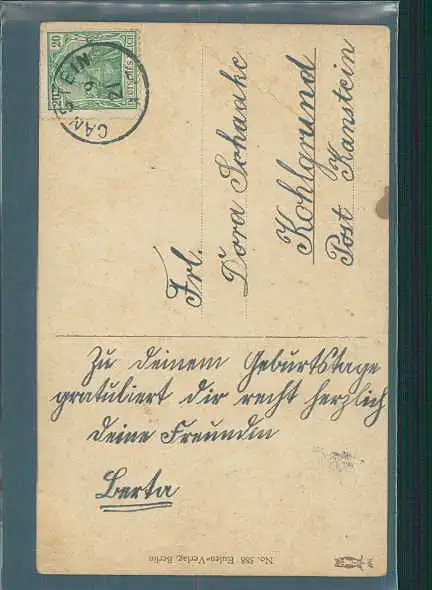 Frl.
Dora Schaake
Kohlgrund
Post Kanstein
Zu deinem Geburtstage
gratuliert dir recht herzlich
deine Freundin
Berta
No. 588 Eulen-Verlag, Berlin
20
20